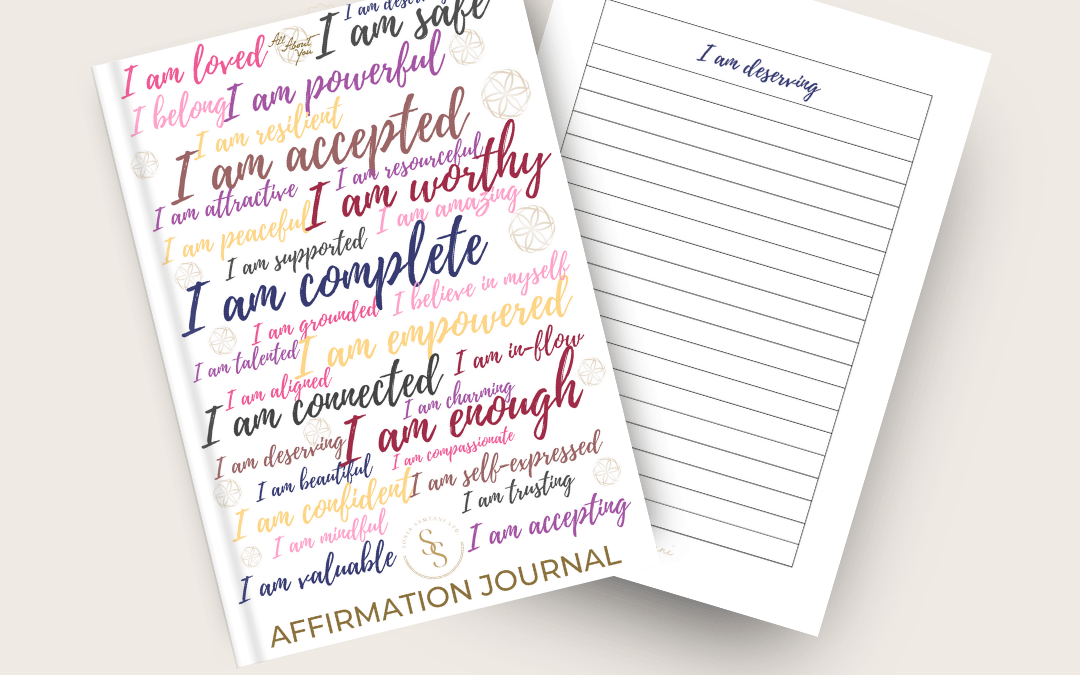 I am deserving
I am safe
All About You
I am loved
I belong
I am powerful
I am resilient
I am accepted
I am resourceful
I am attractive
I am worthy
I am amazing
I am peaceful
I am supported
I am complete
I believe in myself
I am grounded
I am empowered
I am talented
I am in-flow
I am aligned
I am connected
I am charming
I am enough
I am deserving
I am compassionate
I am beautiful
I am self-expressed
I am confident
I am trusting
I am mindful
I am accepting
SS
I am valuable
AFFIRMATION JOURNAL
I am deserving